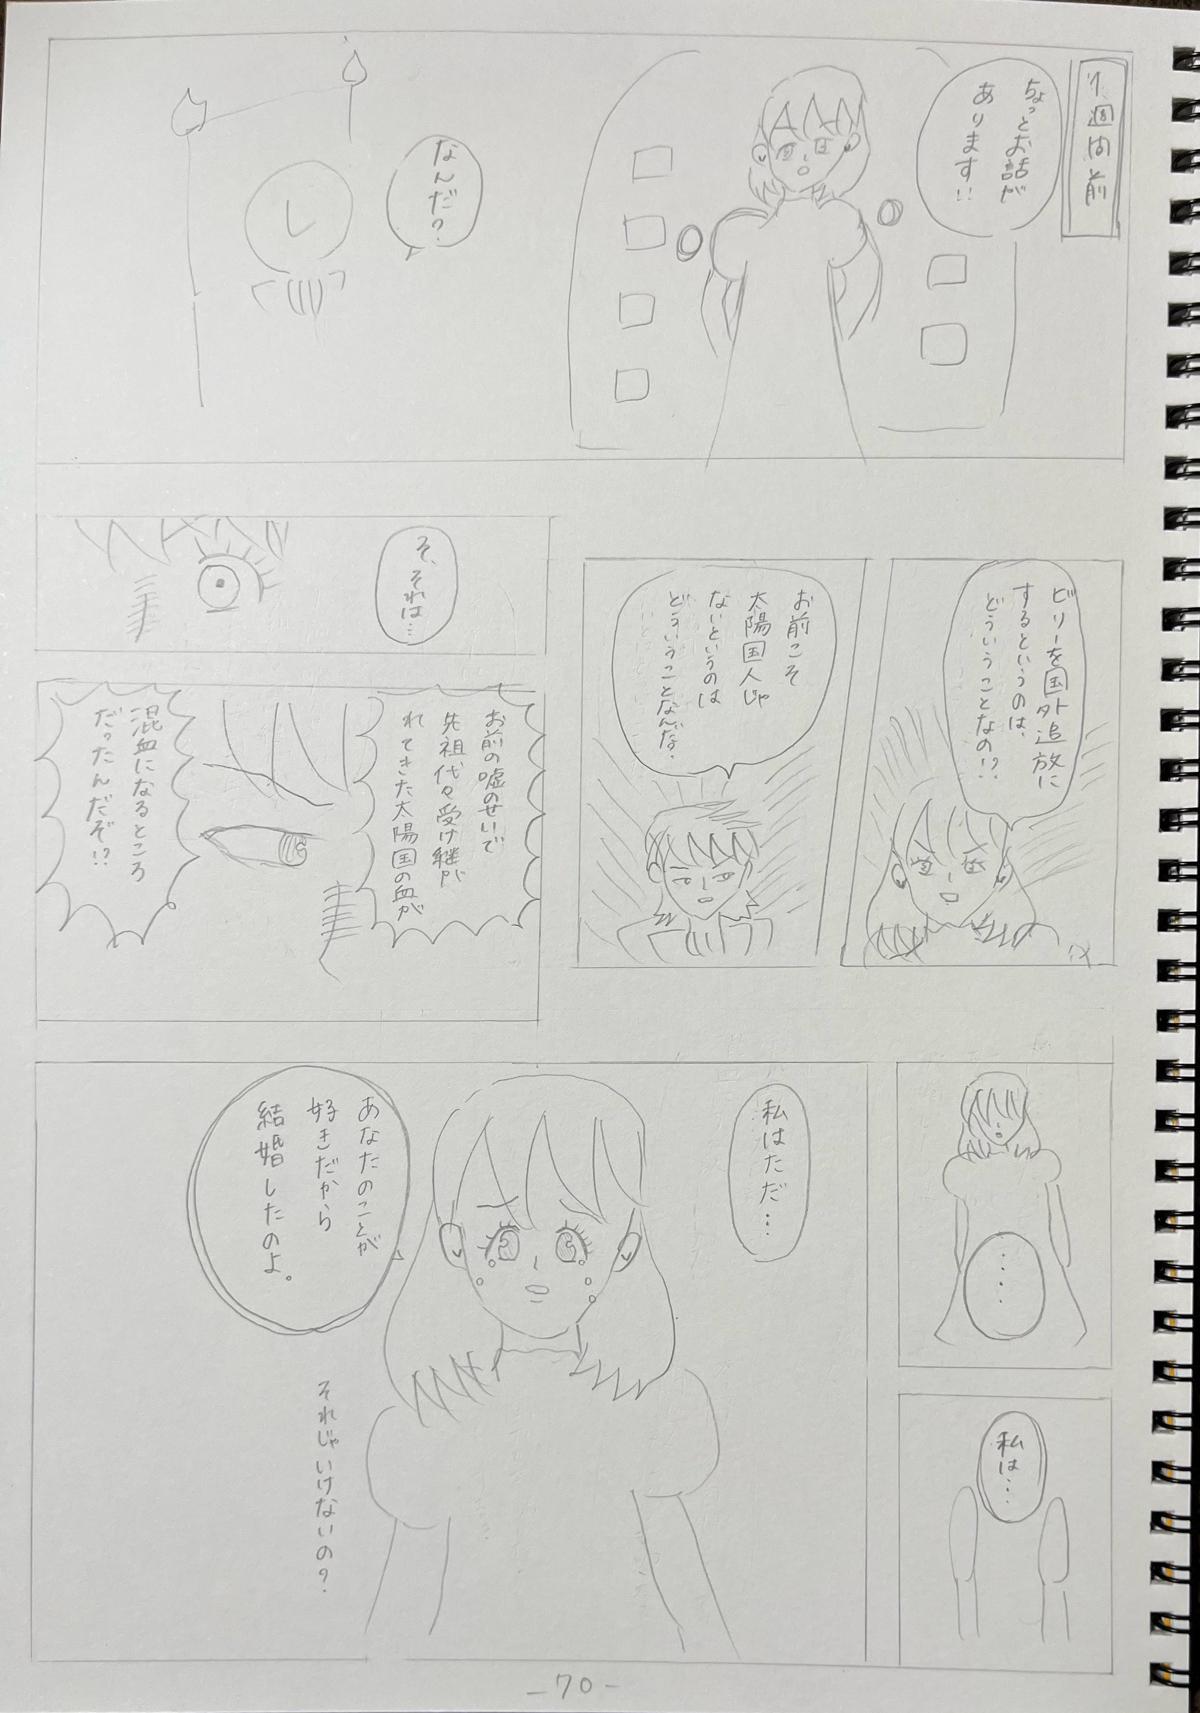 1週間前
ちょっとお話が
あります!!
なんだ?
し
ビリーを国外追放に
するというのは、
どういうことなの!?
お前こそ
太陽国人じゃ
ないというのは
どういうことなんだな.
そ、それは…
お前の嘘のせいで
先祖代々受け継が
れてきた太陽国の血が
混血になるところ
だったんだぞ!?
‥‥
私は…
私はただ…
あなたのことが
好きだから
結婚したのよ。
それじゃいけないの?
-70-